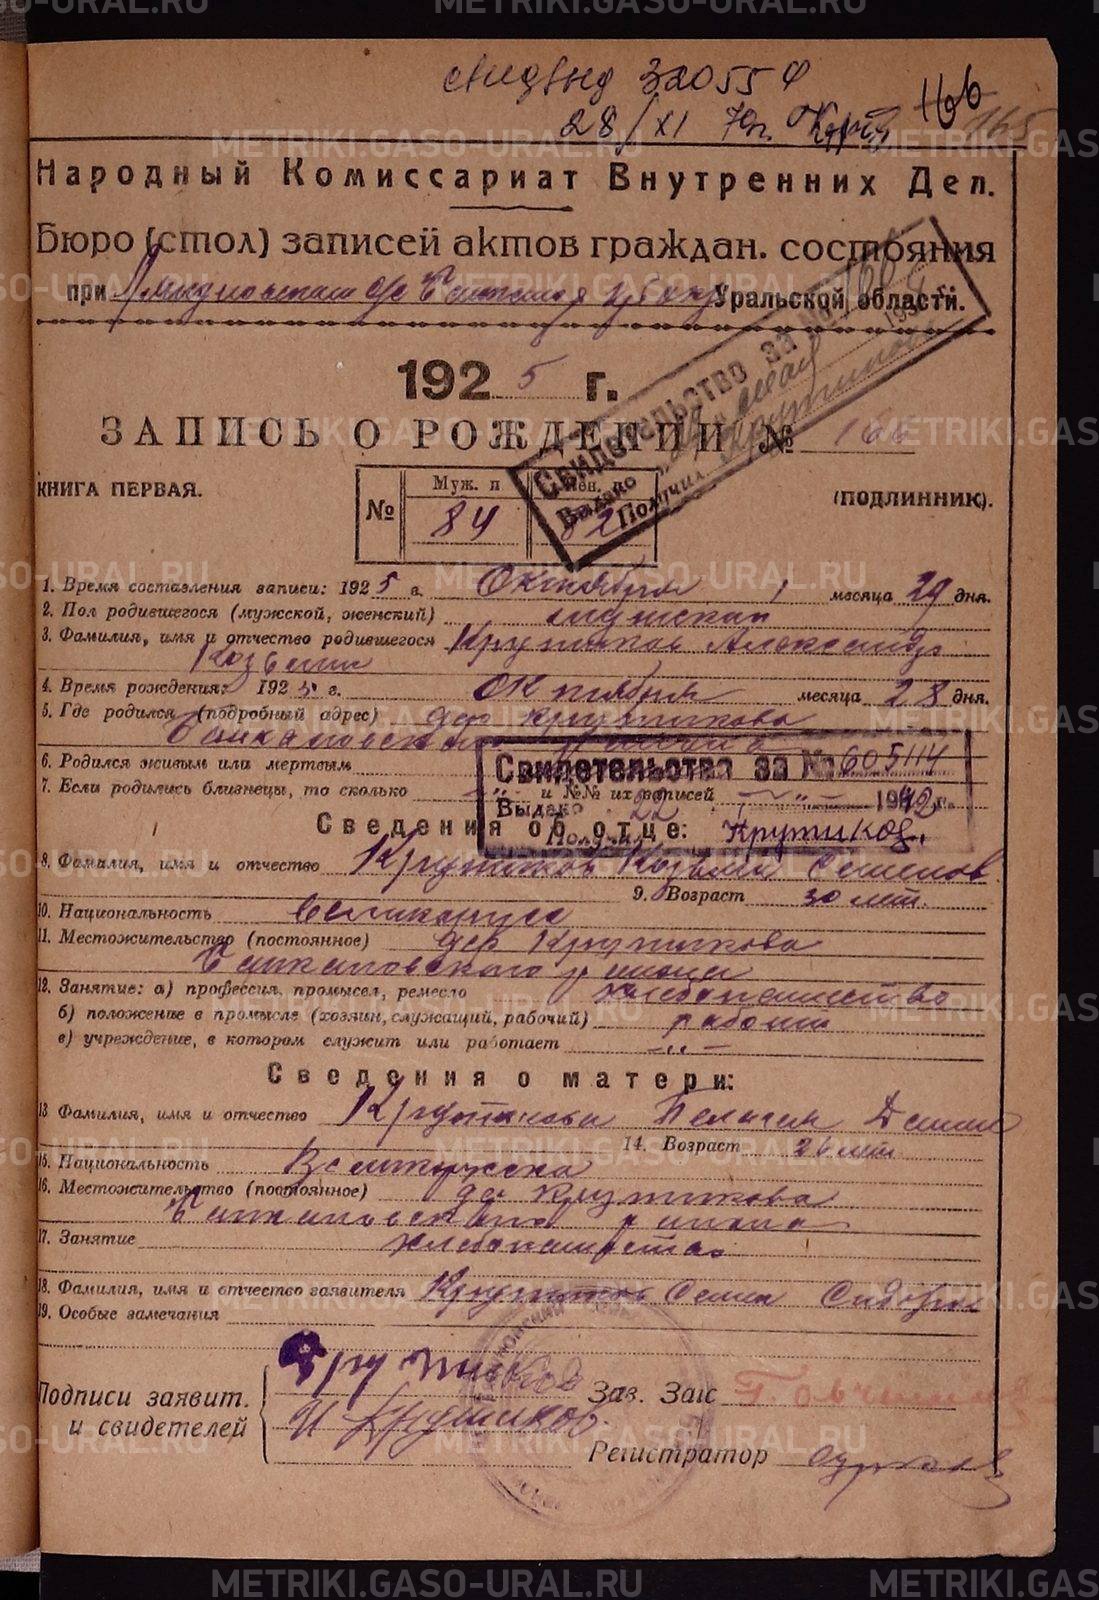 32055
166
28/XI 70г.
165
Народный Комиссариат Внутренних Дел.
Бюро (стол) записей актов граждан. состояния
при Уральской области.
1925 г.
ЗАПИСЬ О РОЖДЕНИИ № 166
Свидетельство за №
Выдано мая
Получил Крутиков
КНИГА ПЕРВАЯ.
(ПОДЛИННИК).
№ Муж. п Жен.
84 82
1. Время составления записи: 1925 г. Октября месяца 29 дня.
2. Пол родившегося (мужской, женский) мужской
3. Фамилия, имя и отчество родившегося Крутиков Александр
Козьмин
4. Время рождения: 1925 г. октября месяца 28 дня.
5. Где родился (подробный адрес) дер Крутикова
района
6. Родился живым или мертвым
Свидетельство за № 605114
7. Если родились близнецы, то сколько -"- и №№ их записей -"-
Выдано 22 1942 г.
Получил Крутиков.
Сведения об отце:
8. Фамилия, имя и отчество Крутиков Козьма Семенов
9. Возраст 30 лет.
10. Национальность великорусс
11. Местожительство (постоянное) дер Крутикова
района
12. Занятие: а) профессия, промысел, ремесло хлебопашество
б) положение в промысле (хозяин, служащий, рабочий) рабочий
в) учреждение, в котором служит или работает -"-
Сведения о матери:
13. Фамилия, имя и отчество Крутикова Пелагея
14. Возраст 26 лет
15. Национальность
16. Местожительство (постоянное) дер Крутикова
района
17. Занятие хлебопашество
18. Фамилия, имя и отчество заявителя Крутиков Семен Сидоров
19. Особые замечания
Подписи заявит. и свидетелей
Крутиков
И Крутиков.
Зав. Загс
Регистратор
METRIKI.GASO-URAL.RU